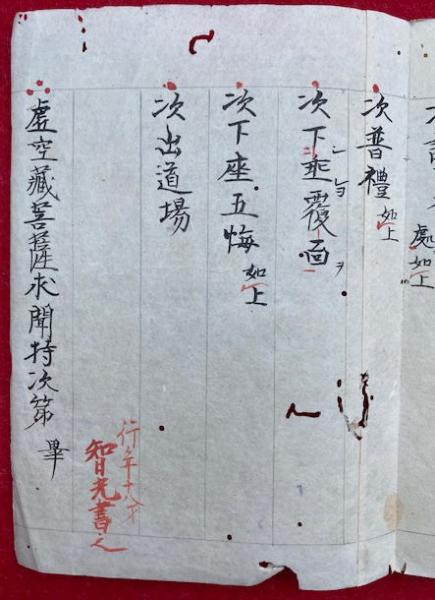 處如上
次普禮如上
次下垂覆面
ヲ
次下座五悔如上
次出道場
虚空藏菩薩求聞持次第 畢
行年十八才
智光書之